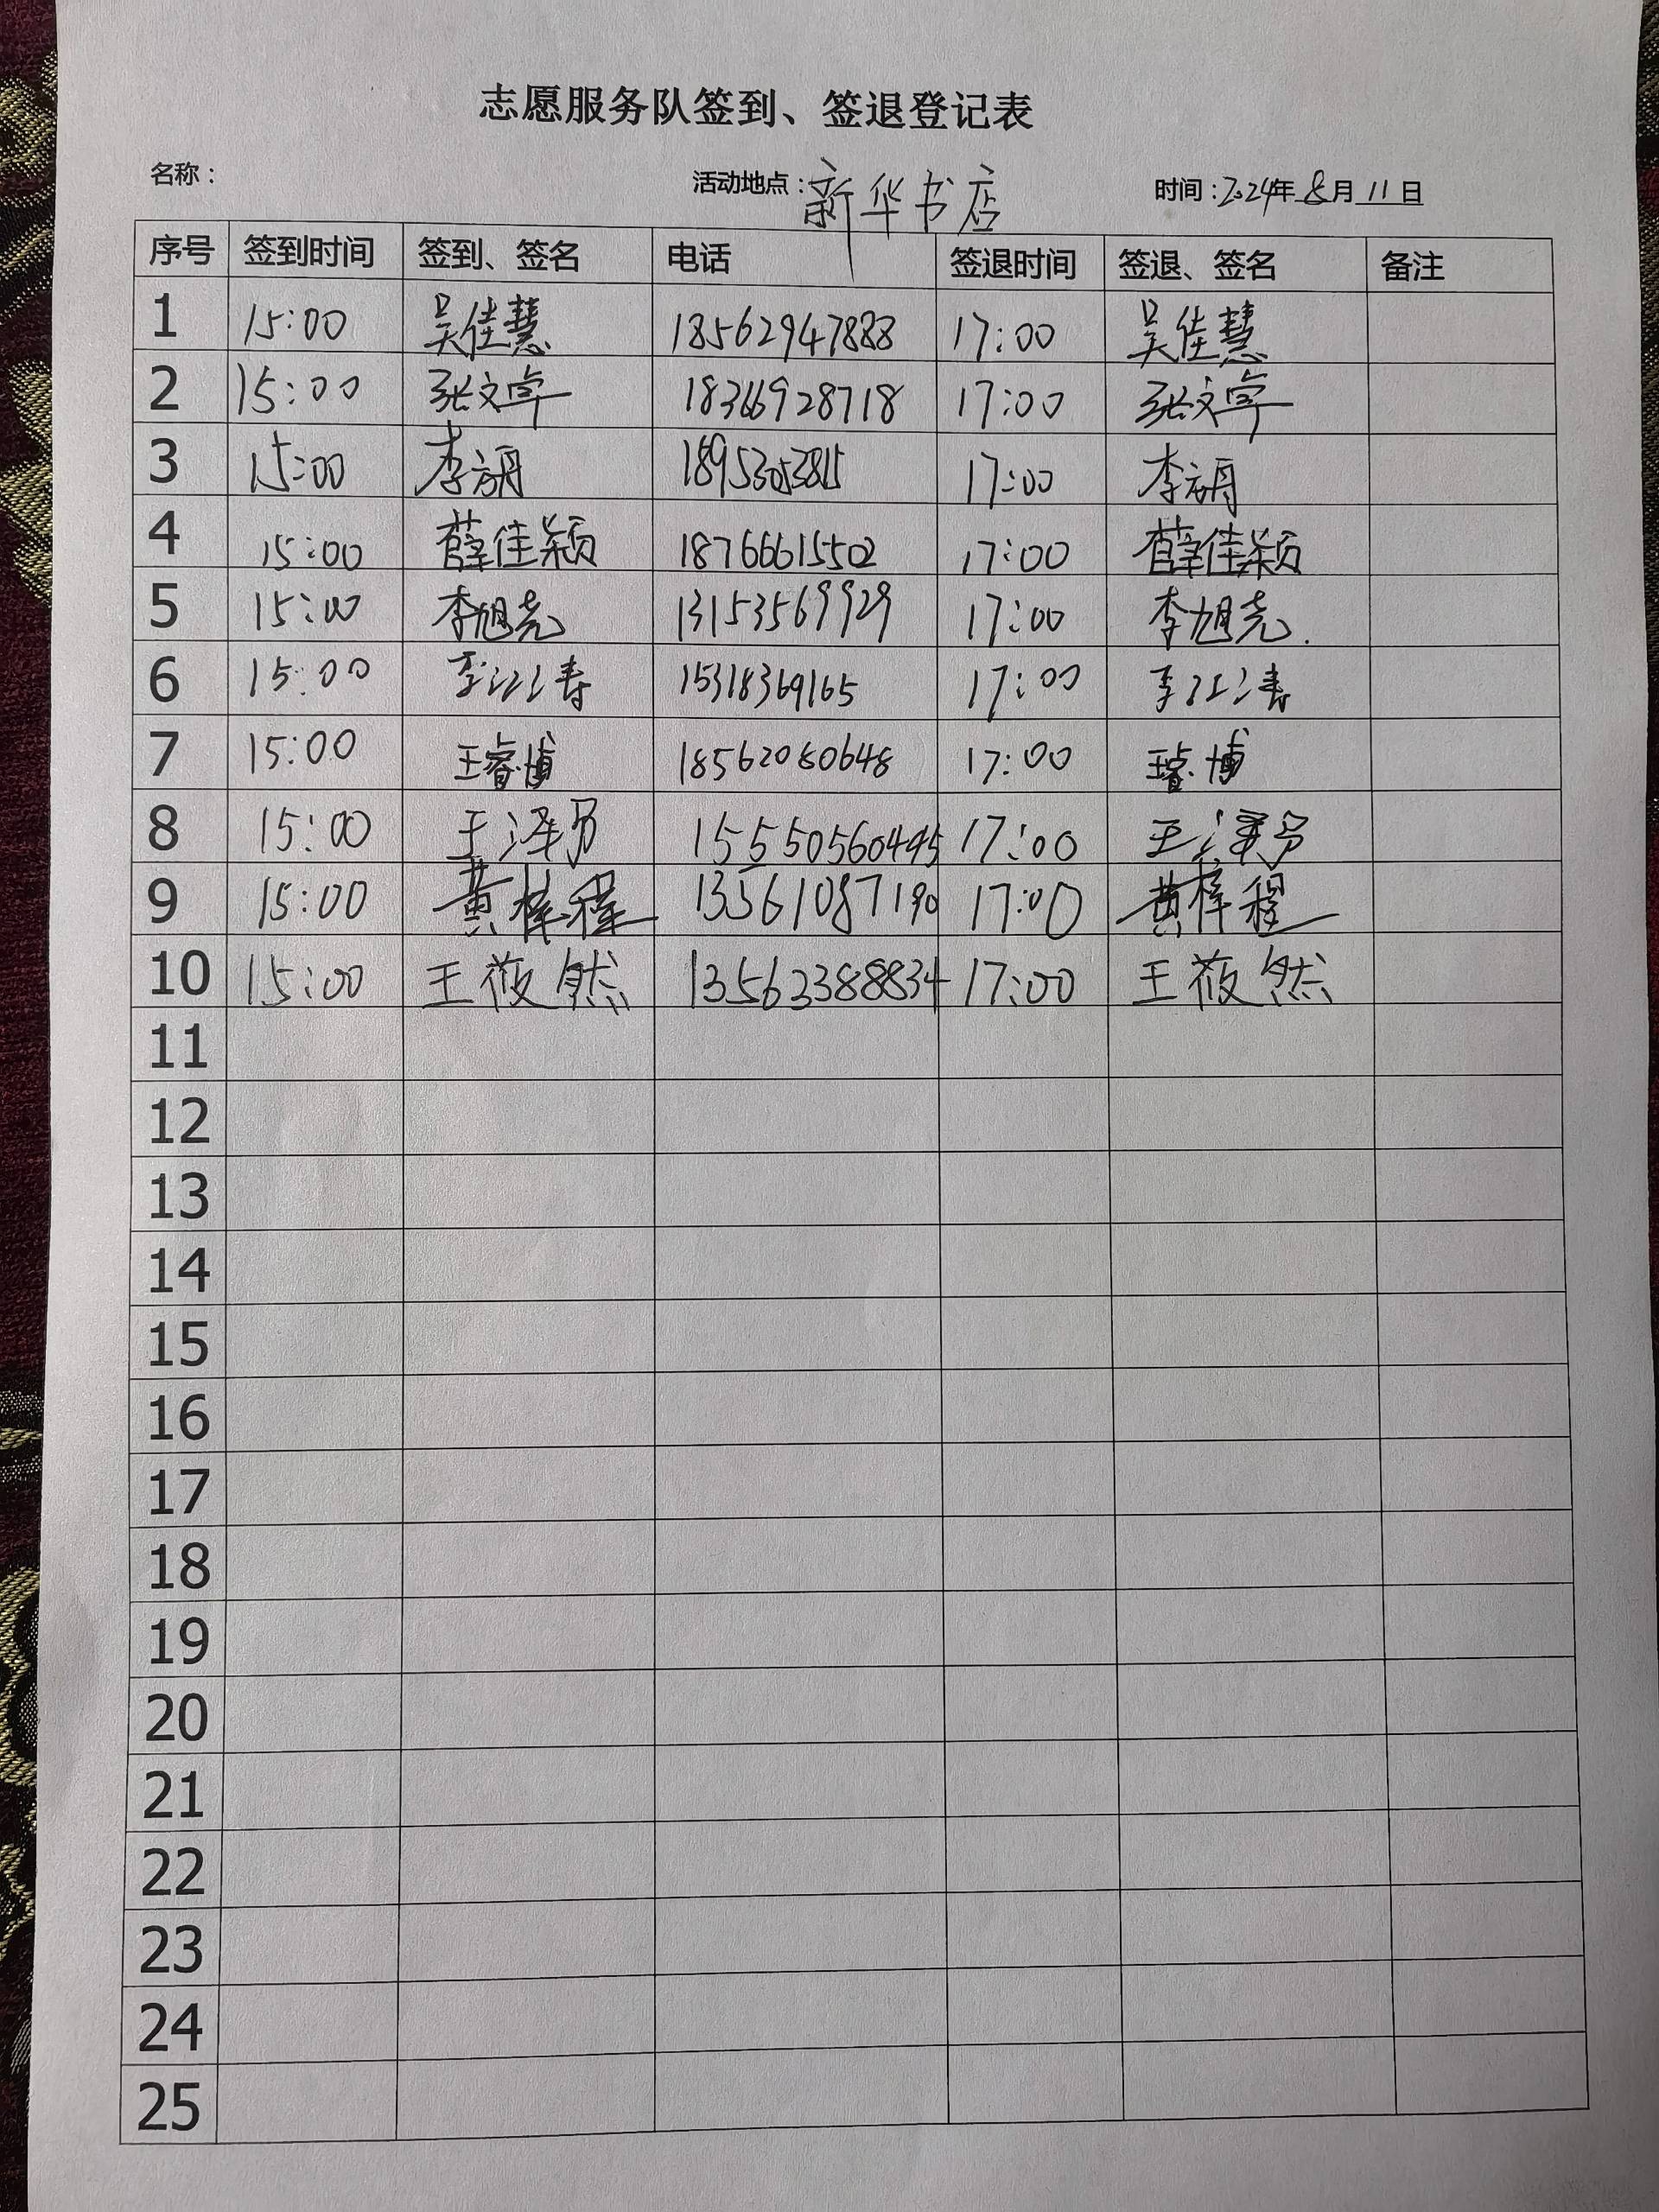 志愿服务队签到、签退登记表
名称： 活动地点：新华书店 时间：2024年 8月 11日
序号 签到时间 签到、签名 电话 签退时间 签退、签名 备注
1 15:00 吴佳慧 18562947888 17:00 吴佳慧
2 15:00 张文卓 18366928718 17:00 张文卓
3 15:00 李 17:00 李
4 15:00 薛佳颖 18766615502 17:00 薛佳颖
5 15:00 李旭尧 13153569929 17:00 李旭尧
6 15:00 李江涛 15318369165 17:00 李江涛
7 15:00 王睿博 18562080648 17:00 王睿博
8 15:00 王泽 15550560445 17:00 王泽
9 15:00 黄梓程 13561087190 17:00 黄梓程
10 15:00 王筱然 13562388834 17:00 王筱然
11
12
13
14
15
16
17
18
19
20
21
22
23
24
25